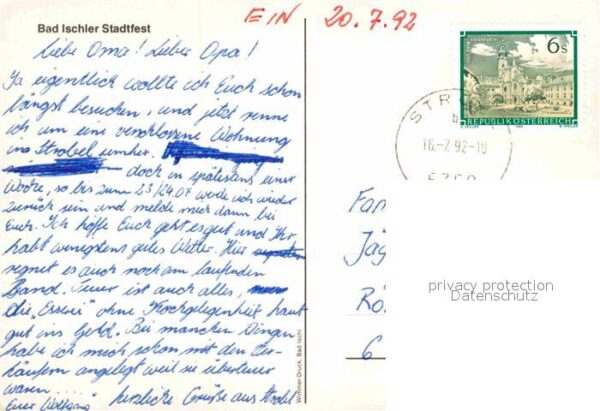 EIN 20.7.92
Bad Ischler Stadtfest
Liebe Oma! Lieber Opa!
Ja eigentlich wollte ich Euch schon
längst besuchen, und jetzt renne
ich um eine verschlossene Wohnung
in Strobel umher.
doch in spätestens einer
Woche, so bis zum 23/24.07 werde ich wieder
zurück sein und melde mich dann bei
Euch. Ich hoffe Euch geht es gut und Ihr
habt wenigstens gutes Wetter. Hier
regnet es auch noch am laufenden
Band. Teuer ist auch alles,
die "Esserei" ohne Kochgelegenheit haut
gut ins Geld. Bei manchen Dingen
habe ich mich schon mit den Ver-
käufern angelegt weil sie überteuer
waren....
Euer Wolfgang herzliche Grüße aus Strobl
Wimmer-Druck, Bad Ischl
6s
REPUBLIK ÖSTERREICH
STRO
16.-7.92-18
5350
Fam
Jäg
Rö
6
privacy protection
Datenschutz